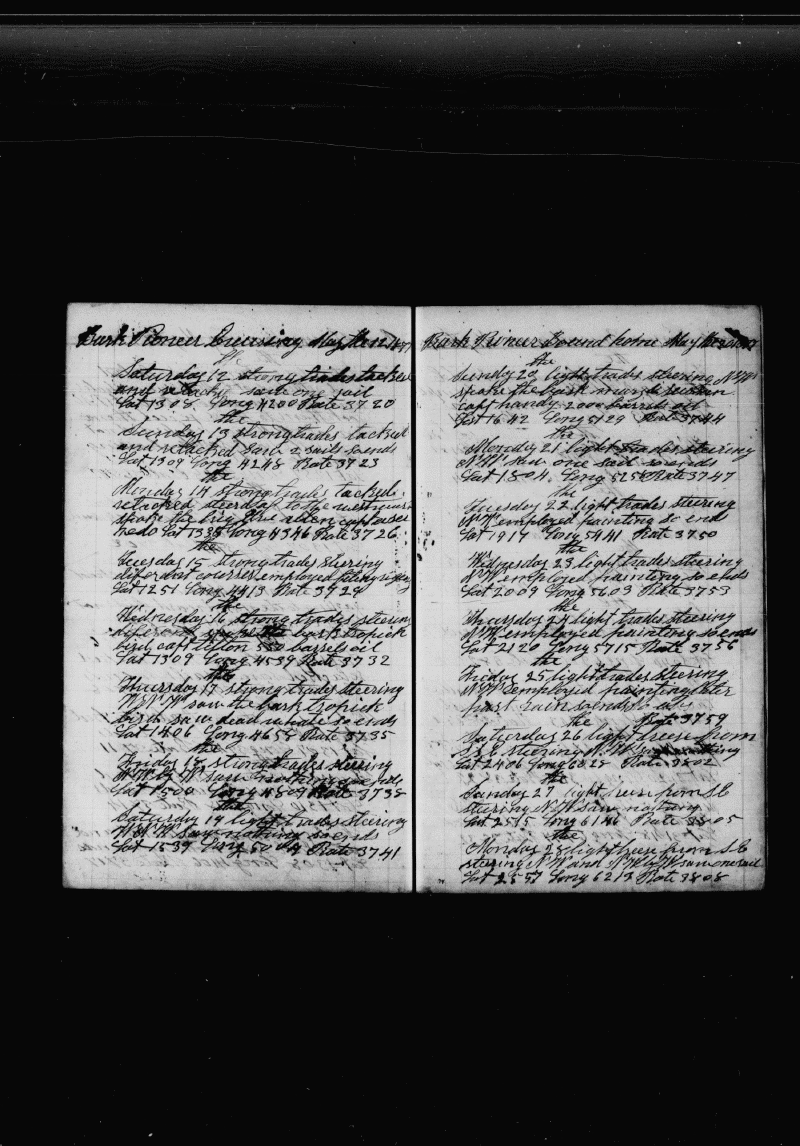 Bark Pioneer Cruising May the 12
the
Saturday 12 strong trades tacked
and retacked saw one sail
Lat 1308 Long 4200 Rate 3720
the
Sunday 13 strong trades tacked
and retacked saw 2 sails so ends
Lat 1309 Long 4248 Rate 3723
the
Monday 14 strong trades tacked
retacked steerd of to the westward
spoke the brig
Lat 1335 Long 4346 Rate 3726
the
Tuesday 15 strong trades steering
diferant courses employed
Lat 1251 Long 4413 Rate 3729
the
Wednesday 16 strong trades steering
diferant spoke the bark tropick
bird capt 550 barrels oil
Lat 1309 Long 4539 Rate 3732
the
Thursday 17 strong trades steering
saw the bark tropick
bird saw dead whale so ends
Lat 1406 Long 4654 Rate 3735
the
Friday 18 strong trades steering
N W by W saw nothing so ends
Lat 1508 Long 4809 Rate 3738
the
Saturday 19 light trades steering
saw nothing so ends
Lat 1539 Long Rate 3741
Bark Pioneer Bound home May the 20
the
Sunday 20 light trades steering N W
spoke the bark
capt handy 2000 barrels oil
Lat 1642 Long 5129 Rate 3744
the
Monday 21 light trades steering
N W saw one sail so ends
Lat 1804 Long Rate 3747
the
Tuesday 22 light trades steering
N W employed painting so end
Lat 1917 Long 5441 Rate 3750
the
Wednesday 23 light trades steering
N W employed painting so ends
Lat 2009 Long 5603 Rate 3753
the
Thursday 24 light trades steering
N W employed painting so ends
Lat 2120 Long 5715 Rate 3756
the
Friday 25 light trades steering
N W employed painting later
part rain so ends
the Rate 3759
Saturday 26 light breese from
S S E steering N W
Lat 2406 Long 6028 Rate 3802
the
Sunday 27 light breese from S E
steering N W saw nothing
Lat 2515 Long 6146 Rate 3805
the
Monday 28 light breese from S E
steering N W and N W by W saw one sail
Lat 2557 Long 6213 Rate 3808